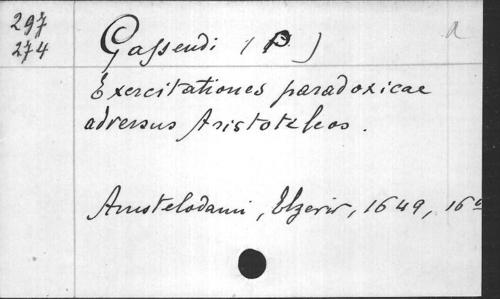 297
274
Gassendi (P.)
a
Exercitationes paradoxicae
adversus Aristoteleos.
Amstelodami, Elzevir, 1649, 16º